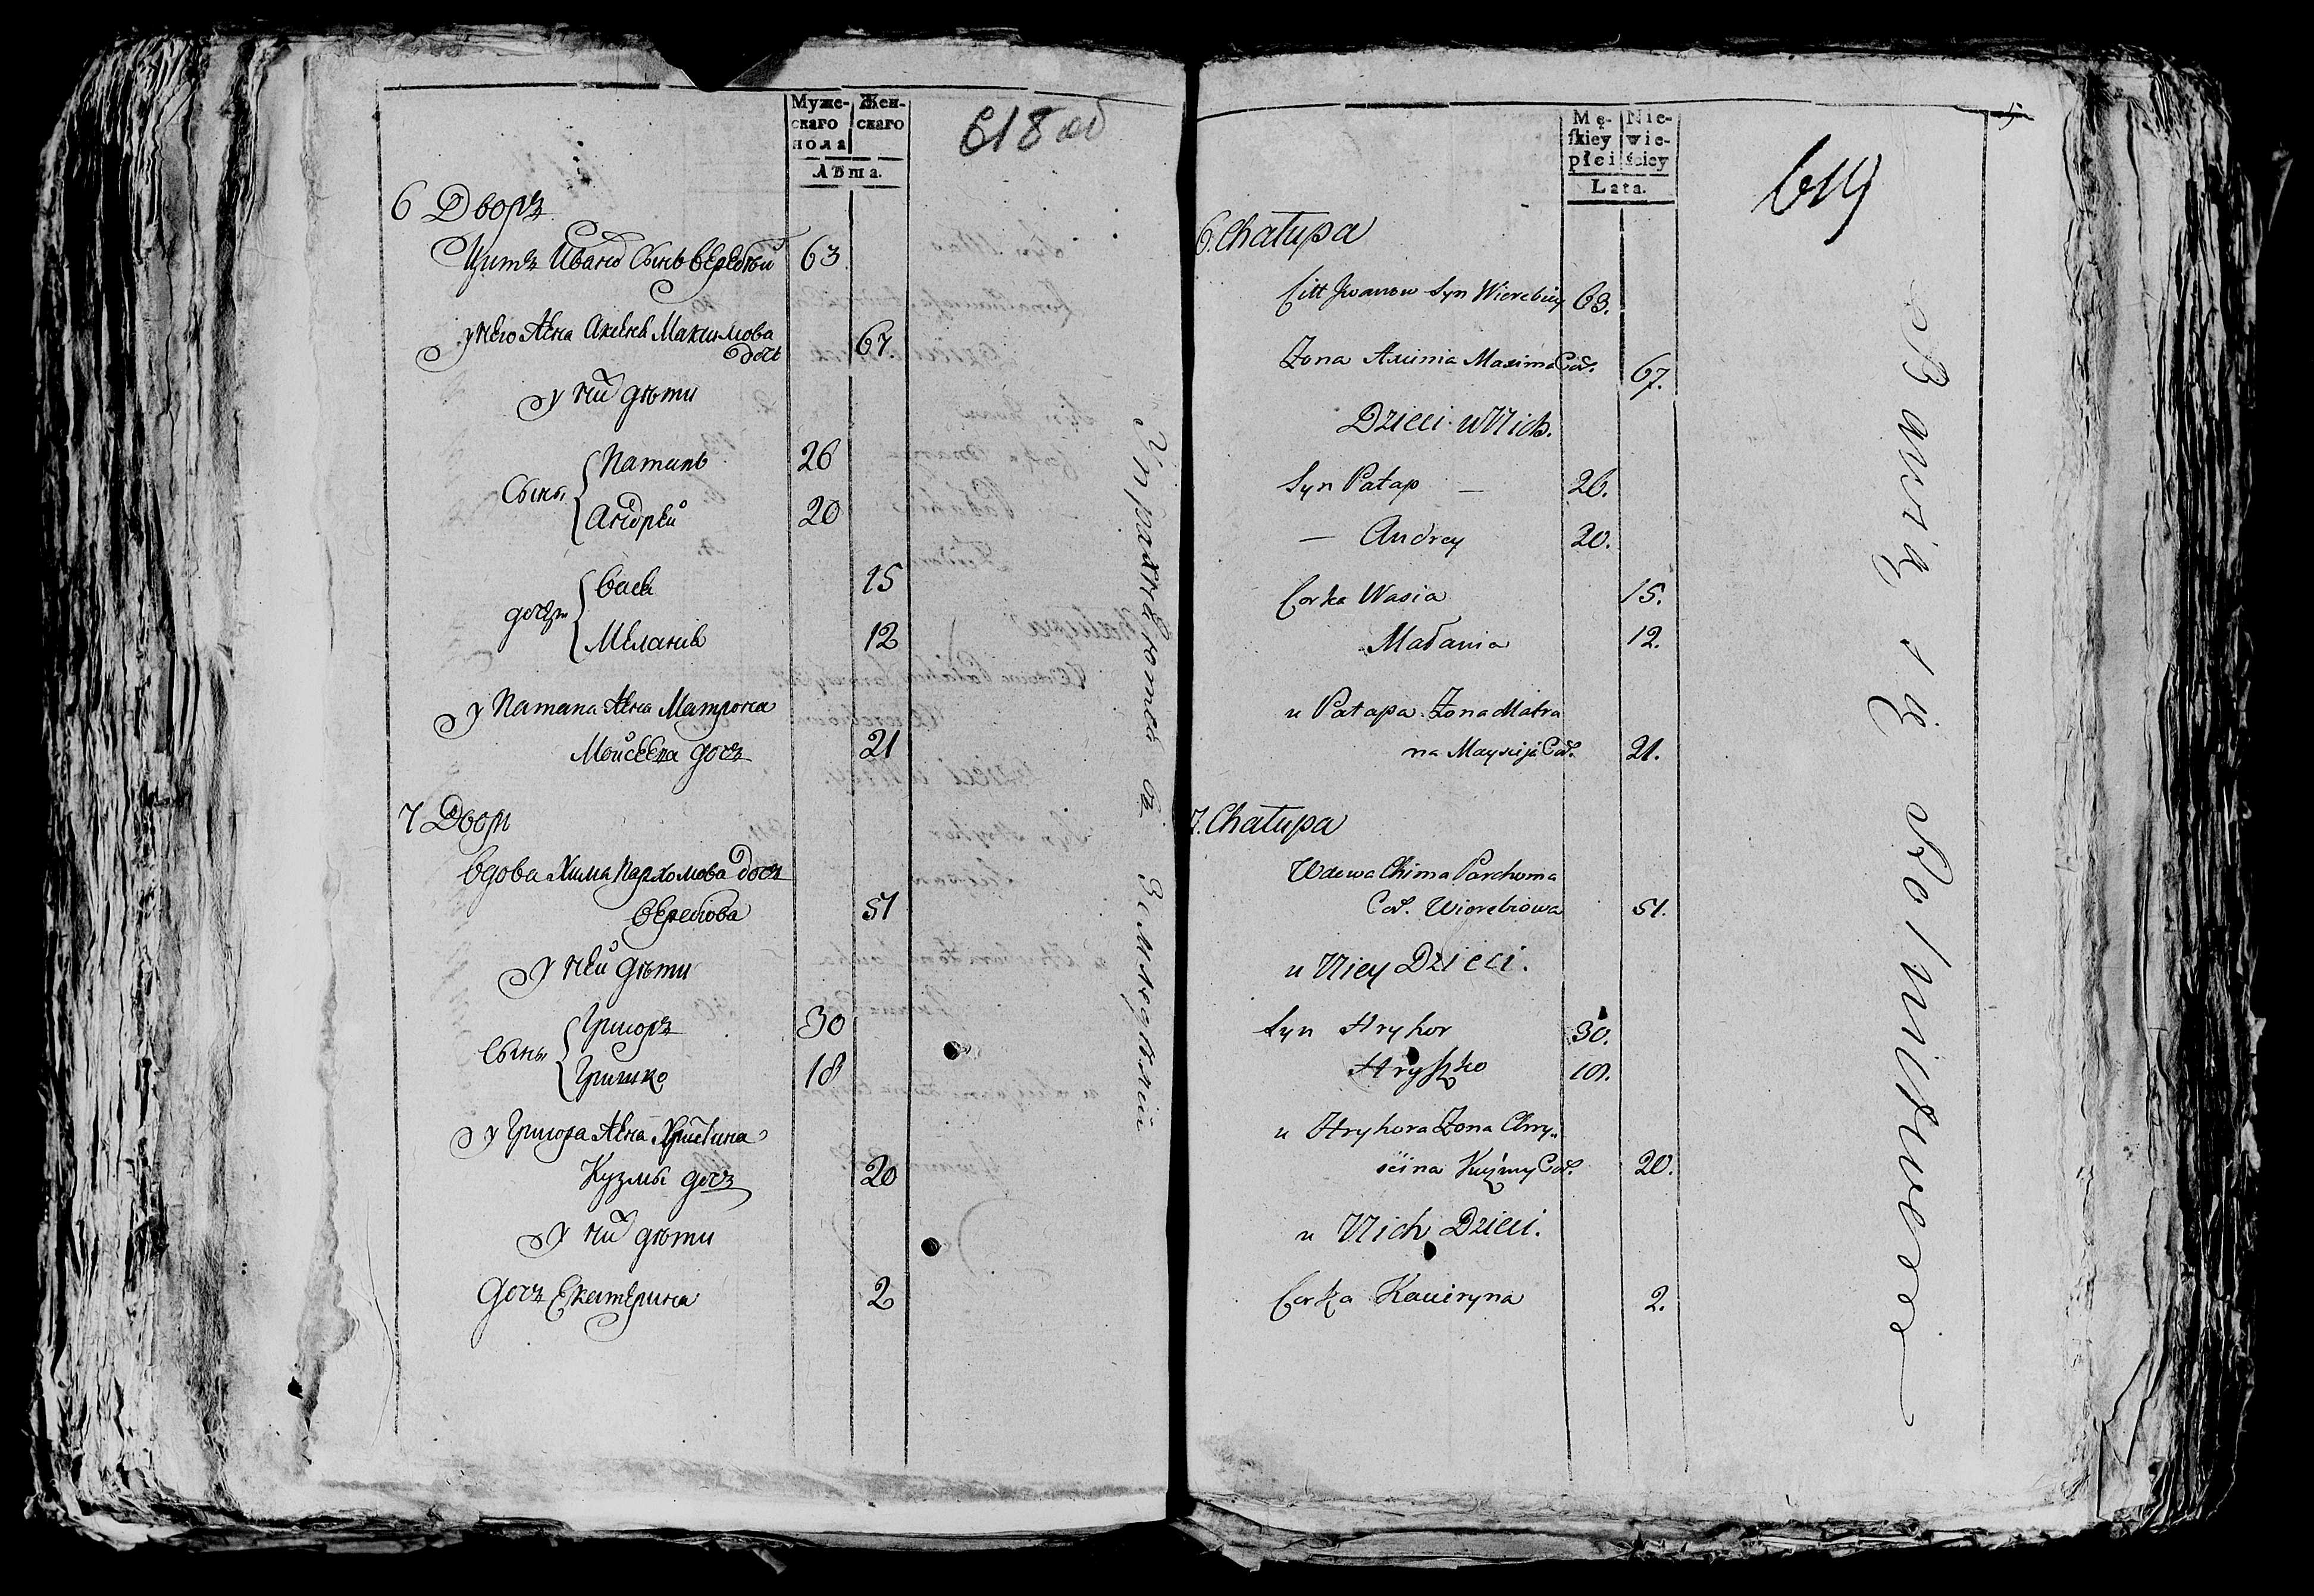 Муже-
скаго
пола
Жен-
скаго
Лѣта.
618 об
6 Дворъ
Цитъ Иванов Сынъ Веребѣй 63
у него Жена Аксенѣ Максимова
дочь 67
у них дѣти
Сыны Патапъ 26
Андрей 20
дочери Вася 15
Меланиѣ 12
у Патапа Жена Матрона
Моисеева дочъ 21
7 Дворъ
Вдова Хима Пархомова дочъ
Веребiова 51
у ней дѣти
Сыны Григоръ 30
Гришко 18
у Григора Жена Христина
Кузмы дочъ 20
у них дѣти
дочъ Екатерина 2
Упражняютса въ Земледѣлии
Mę-
skiey
płci
Nie-
wie-
ściey
Lata.
5
619
6. Chałupa
Citt Jwanow Syn Wierebiey 63.
Żona Axinia Maxima Cór. 67.
Dzieci u Nich.
Syn Patap — 26.
— Andrey 20.
Corka Wasia 15.
Małania 12.
u Patapa Żona Matro
na Mayseja Cór. 21.
7. Chałupa
Wdowa Chima Parchoma
Cór. Wierebiowa 51.
u Niey Dzieci.
Syn Hryhor 30.
Hryszko 18.
u Hryhora Żona Chry„
scina Kuźmy Cór. 20.
u Nich Dzieci.
Corka Kaciryna 2.
Bawią się Rolnictwem